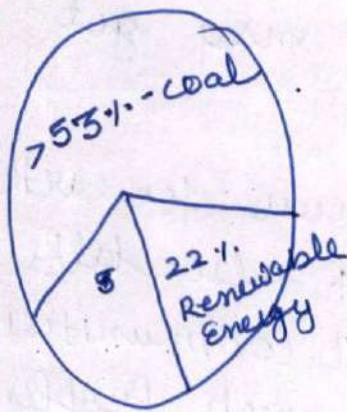 >53%-coal
22%
Renewable
Energy